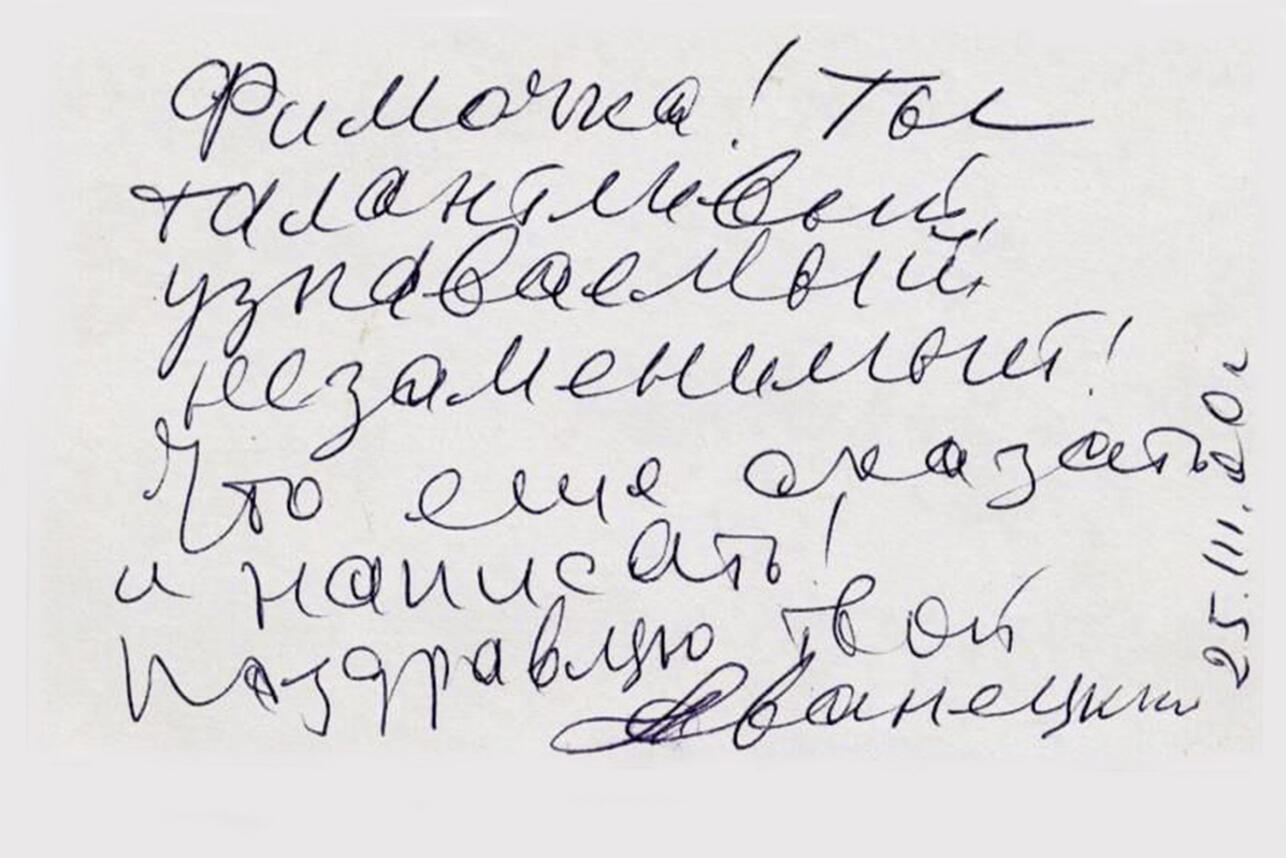 Фимочка! Ты
талантливый,
узнаваемый,
незаменимый!
Что еще сказать
и написать!
Поздравлю твой
Жванецкий
25.III.20г